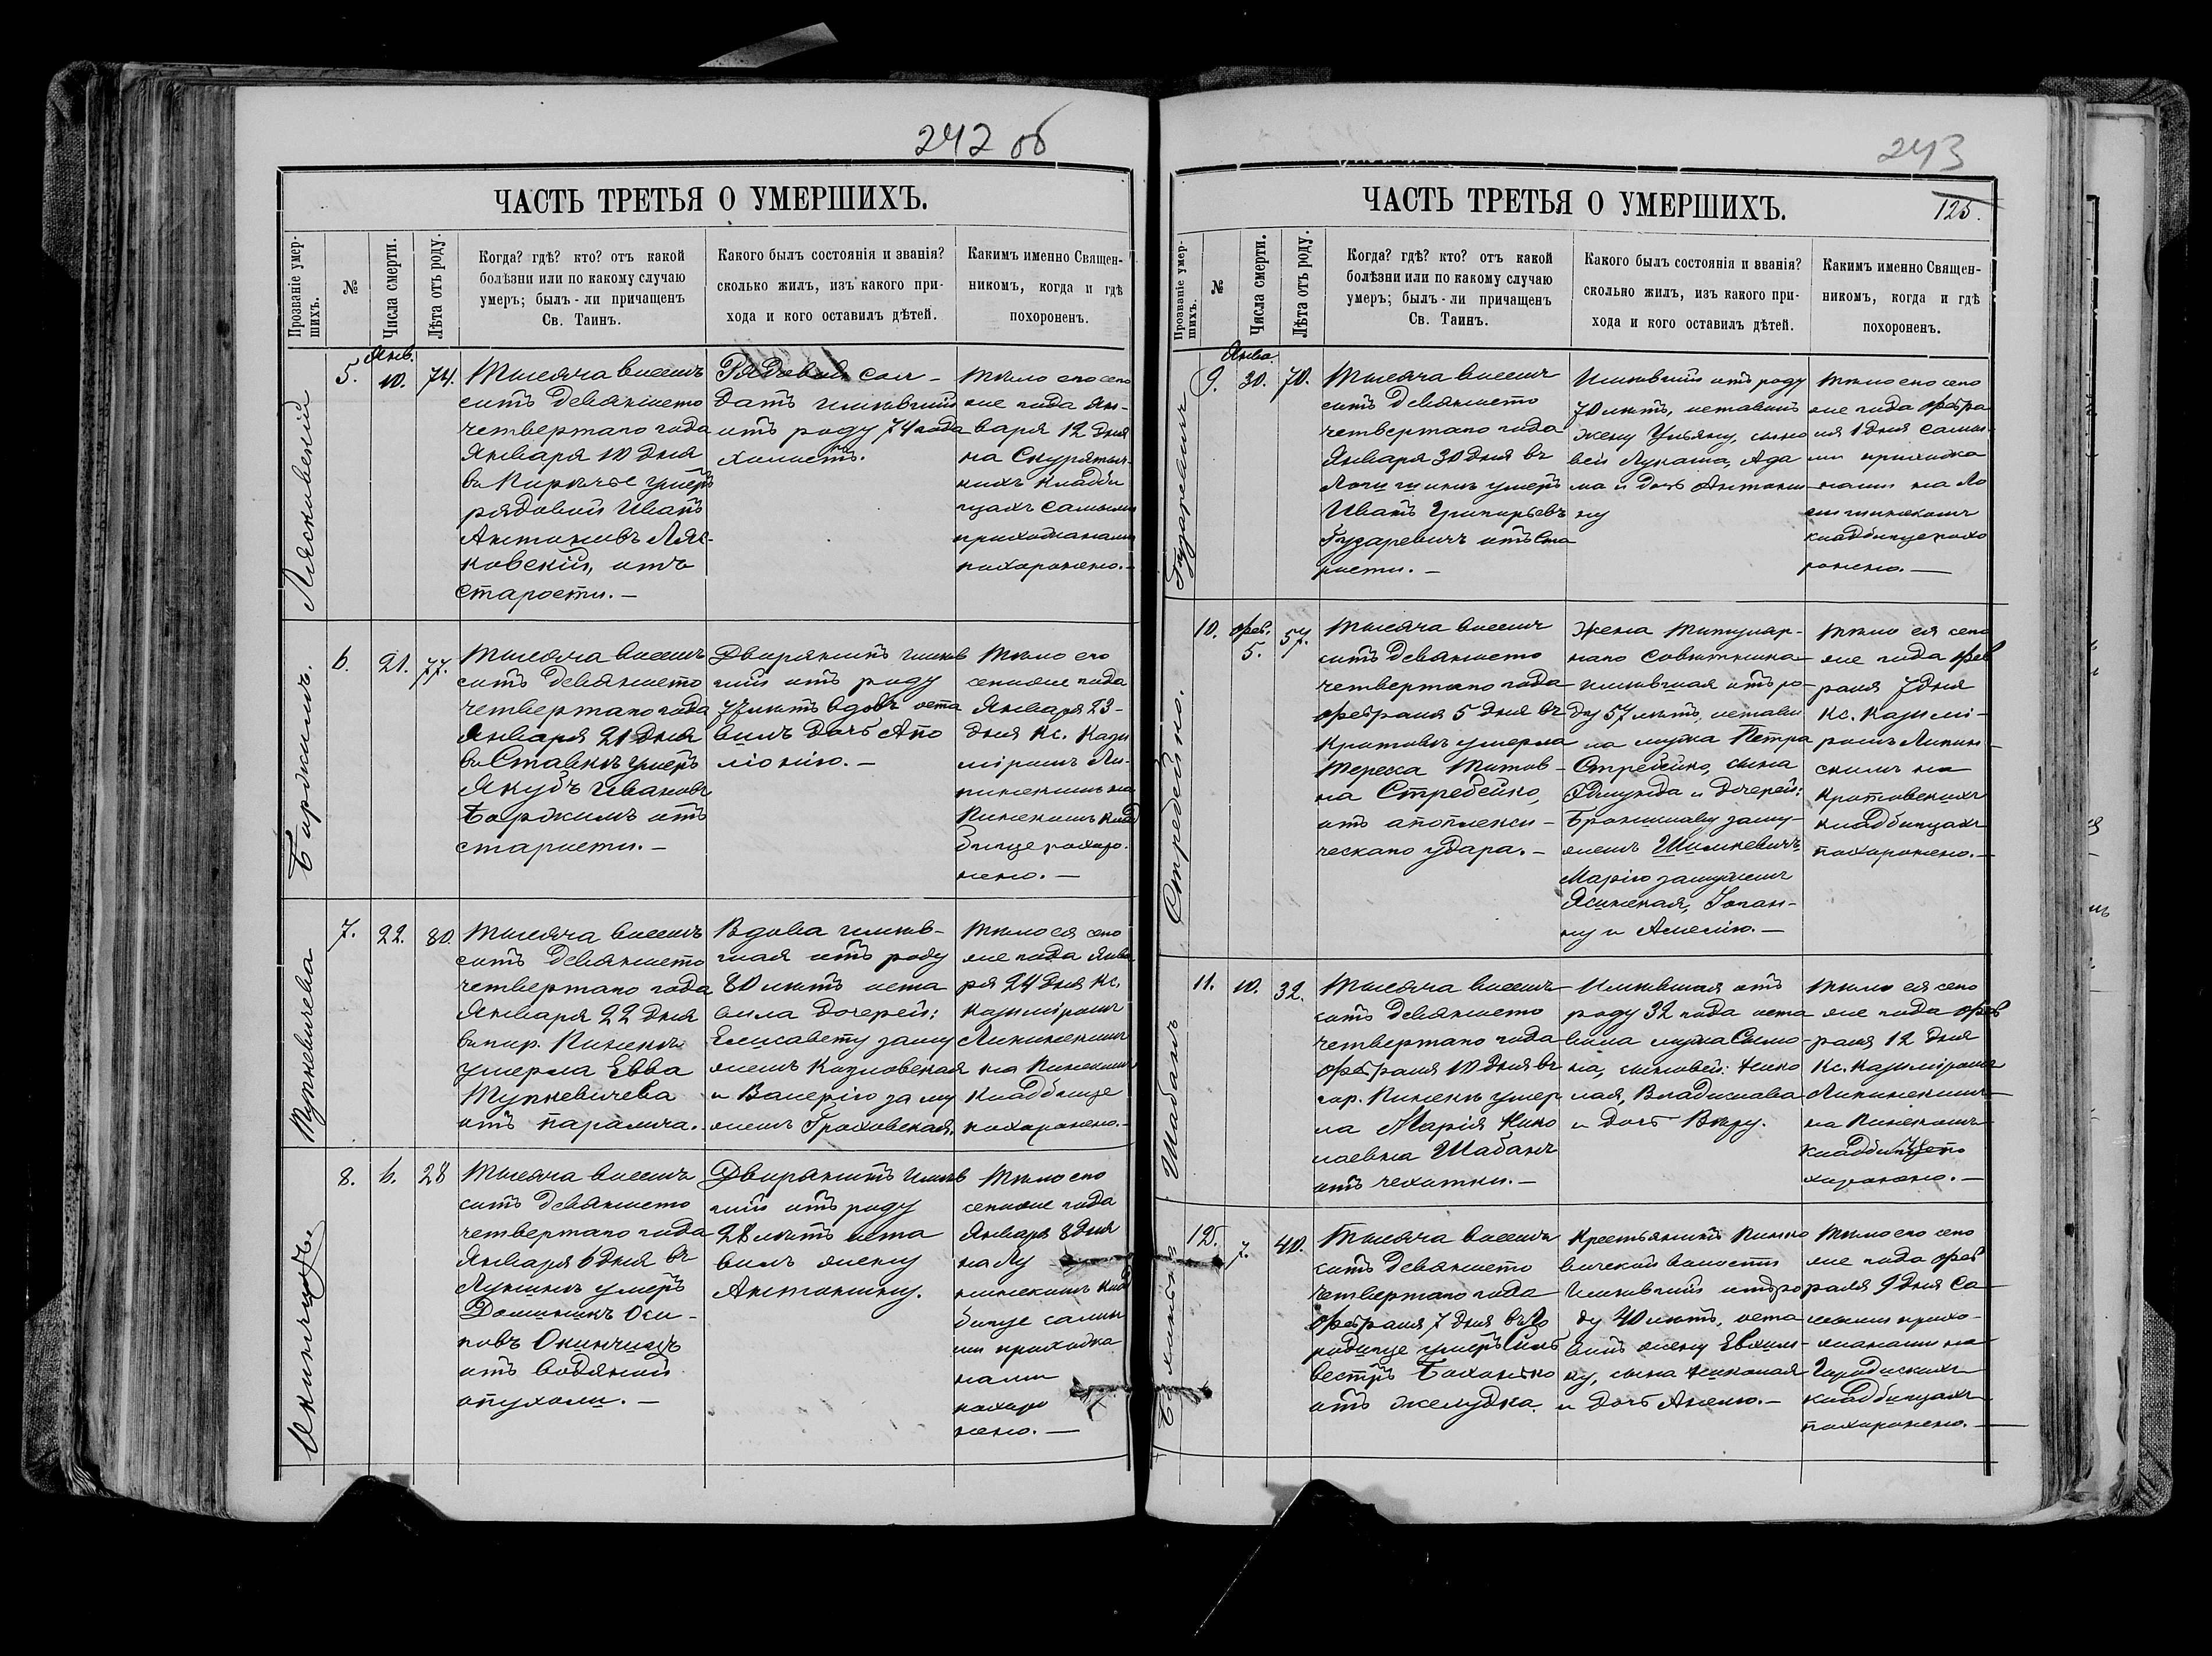 242 об
ЧАСТЬ ТРЕТЬЯ О УМЕРШИХЪ.
Прозваніе умер-
шихъ.
№
Числа смерти.
Лѣта отъ роду.
Когда? гдѣ? кто? отъ какой
болѣзни или по какому случаю
умеръ; былъ-ли причащенъ
Св. Таинъ.
Какого былъ состоянія и званія?
сколько жилъ, изъ какого при-
хода и кого оставилъ дѣтей.
Какимъ именно Священ-
никомъ, когда и гдѣ
похороненъ.
Лясковскій
5.
Янв.
10.
74.
Тысяча восемь
сотъ девяносто
четвертаго года
Января 10 дня
въ умеръ
рядовой Иванъ
Антоновъ Ляс-
ковскій, отъ
старости. —
Рядовой сол-
датъ имѣвшій
отъ роду 74 года
холостъ.
Тѣло его сего
же года Ян-
варя 12 дня
на
кихъ кладби
щахъ самыми
прихожанами
похоронено. —
Боржимъ.
6.
21.
77.
Тысяча восемь
сотъ девяносто
четвертаго года
Января 21 дня
въ Ставкѣ умеръ
Якубъ Ивановъ
Боржимъ отъ
старости. —
Дворянинъ имѣв
шій отъ роду
77 лѣтъ вдовъ оста
вилъ дочь Апо
лонію. —
Тѣло его
сего же года
Января 23
дня Кс. Кази
міромъ Ли-
пинскимъ на
Пинскомъ клад
бище похоро-
нено. —
Тупкевичева
7.
22.
80.
Тысяча восемь
сотъ девяносто
четвертаго года
Января 22 дня
въ гор. Пинскѣ
умерла Евва
Тупкевичева
отъ паралича. —
Вдова имѣв-
шая отъ роду
80 лѣтъ оста
вила дочерей:
Елисавету заму
жемъ Козловская
и Валерію за му
жемъ Гроховская.
Тѣло ея сего
же года Янва
ря 24 дня Кс.
Казиміромъ
Липинскимъ
на Пинскомъ
кладбище
похоронено. —
Окинчицъ
8.
6.
28
Тысяча восемь
сотъ девяносто
четвертаго года
Января 6 дня въ
Лунинѣ умеръ
Доминикъ Оси-
повъ Окинчицъ
отъ водяной
опухоли. —
Дворянинъ имѣв
шій отъ роду
28 лѣтъ оста
вилъ жену
Антонину.
Тѣло его
сего же года
Января 8 дня
на Лу
нинскомъ клад
бище самы
ми прихожа
нами
похоро
нено. —
243
ЧАСТЬ ТРЕТЬЯ О УМЕРШИХЪ.
125.
Прозваніе умер-
шихъ.
№
Числа смерти.
Лѣта отъ роду.
Когда? гдѣ? кто? отъ какой
болѣзни или по какому случаю
умеръ; былъ-ли причащенъ
Св. Таинъ.
Какого былъ состоянія и званія?
сколько жилъ, изъ какого при-
хода и кого оставилъ дѣтей.
Какимъ именно Священ-
никомъ, когда и гдѣ
похороненъ.
Гузаревичъ
9.
Янва.
30.
70.
Тысяча восемь
сотъ девяносто
четвертаго года
Января 30 дня въ
Логишинѣ умеръ
Иванъ Григорьевъ
Гузаревичъ отъ ста
рости. —
Имѣвшій отъ роду
70 лѣтъ, оставилъ
жену Ульяну, сыно
вей Лукаша, Ада
ма и дочь Антони
ну
Тѣло его сего
же года Февра
ля 1 дня самы-
ми прихожа
нами на Ло
гишинскомъ
кладбище похо
ронено. —
Стребейко.
10.
Фев.
5.
57.
Тысяча восемь
сотъ девяносто
четвертаго года
Февраля 5 дня въ
Кротовѣ умерла
Тереса Титов-
на Стребейко,
отъ апоплекси-
ческаго удара. —
Жена Титуляр-
наго Совѣтника
имѣвшая отъ ро-
ду 57 лѣтъ, остави
ла мужа Петра
Стребейко, сына
Эдмунда и дочерей:
Брониславу заму-
жемъ Шимкевичъ
Марію замужемъ
Ясинская, Іоган-
ну и Амелію. —
Тѣло ея сего
же года Фев
раля 7 дня
Кс. Казимі-
ромъ Липин-
скимъ на
Кротовскихъ
кладбищахъ
похоронено. —
Шабанъ
11.
10.
32.
Тысяча восемь
сотъ девяносто
четвертаго года
Февраля 10 дня въ
гор. Пинскѣ умер
ла Марія Нико
лаевна Шабанъ
отъ чахотки. —
Имѣвшая отъ
роду 32 года оста
вила мужа Симо-
на, сыновей: Нико
лая, Владислава
и дочь Вѣру.
Тѣло ея сего
же года Фев
раля 12 дня
Кс. Казиміромъ
Липинскимъ
на Пинскомъ
кладбище по
хоронено. —
12.
7.
40.
Тысяча восемь
сотъ девяносто
четвертаго года
Февраля 7 дня въ Го
родище умеръ Силь
вестръ Боханько
отъ желудка.
Крестьянинъ Пинко
вичской волости
имѣвшій отъ ро
ду 40 лѣтъ, оста
вилъ жену Евхим-
ку, сына Николая
и дочь Анелю. —
Тѣло его сего
же года Фев
раля 9 дня са
мыми прихо-
жанами на
Городискихъ
кладбищахъ
похоронено. —